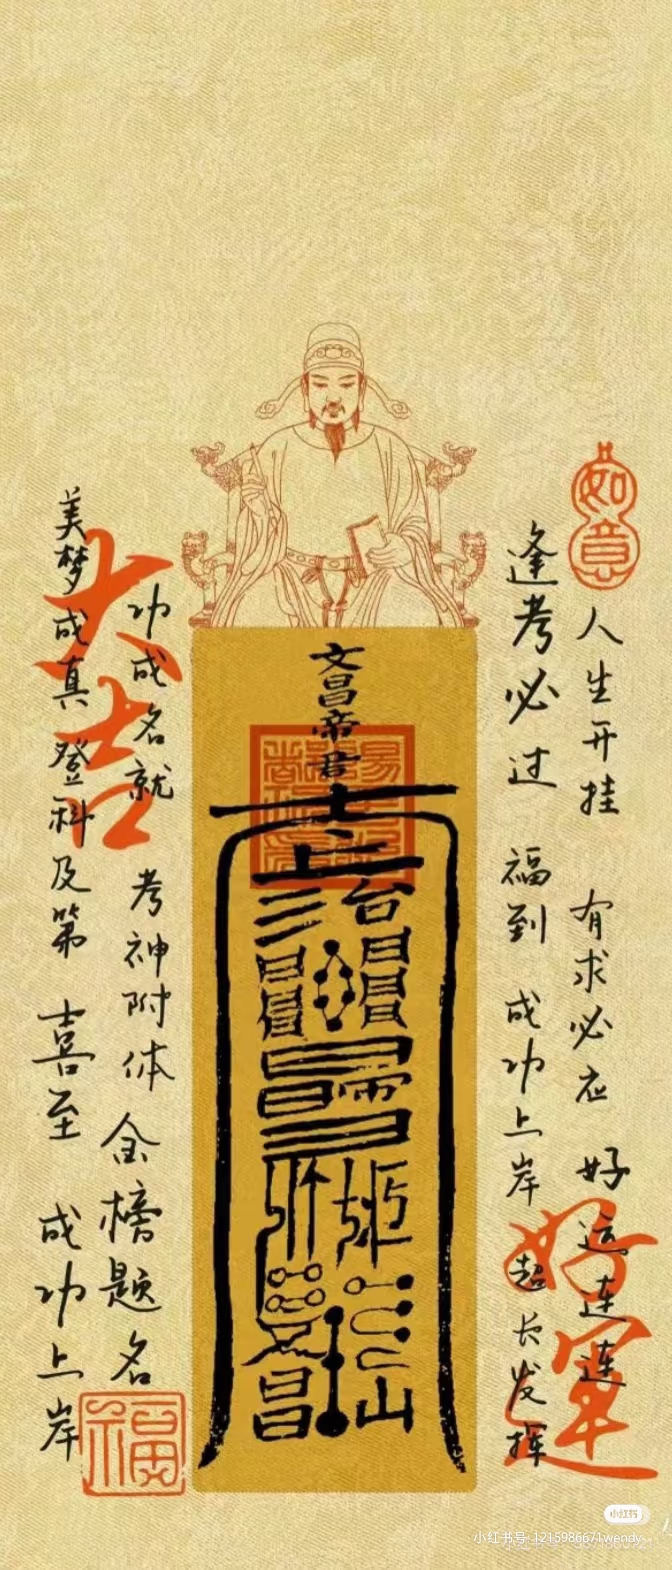 如意
人生开挂 有求必应 好运连连
逢考必过 福到 成功上岸 超长发挥
好运
文昌帝君
台
昌
山
大吉
功成名就 考神附体 金榜题名
美梦成真 登科及第 喜至 成功上岸
福
小红书
小红书号: 1215986671wendy